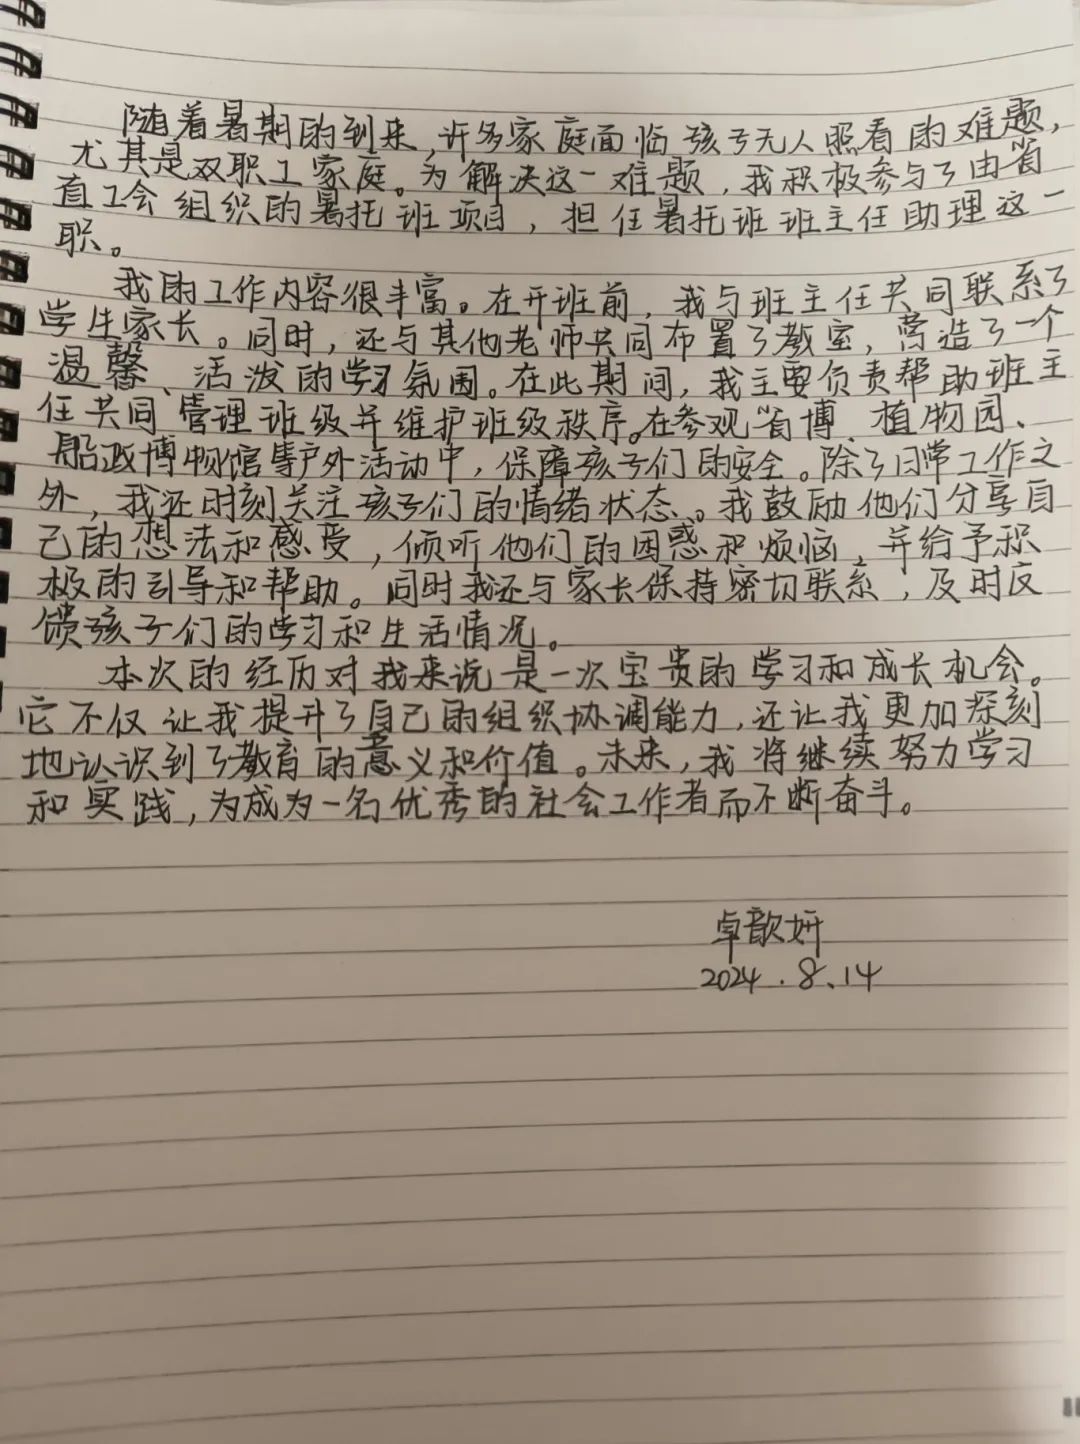 随着暑期的到来,许多家庭面临孩子无人照看的难题,
尤其是双职工家庭。为解决这一难题,我积极参与了由省
直工会组织的暑托班项目,担任暑托班班主任助理这一
职。
我的工作内容很丰富。在开班前,我与班主任共同联系了
学生家长。同时,还与其他老师共同布置了教室,营造了一个
温馨、活泼的学习氛围。在此期间,我主要负责帮助班主
任共同管理班级并维护班级秩序。在参观省博、植物园、
船政博物馆等户外活动中,保障孩子们的安全。除了日常工作之
外,我还时刻关注孩子们的情绪状态。我鼓励他们分享自
己的想法和感受,倾听他们的困惑和烦恼,并给予积
极的引导和帮助。同时我还与家长保持密切联系,及时反
馈孩子们的学习和生活情况。
本次的经历对我来说是一次宝贵的学习和成长机会。
它不仅让我提升了自己的组织协调能力,还让我更加深刻
地认识到了教育的意义和价值。未来,我将继续努力学习
和实践,为成为一名优秀的社会工作者而不断奋斗。
卓歆妍
2024.8.14